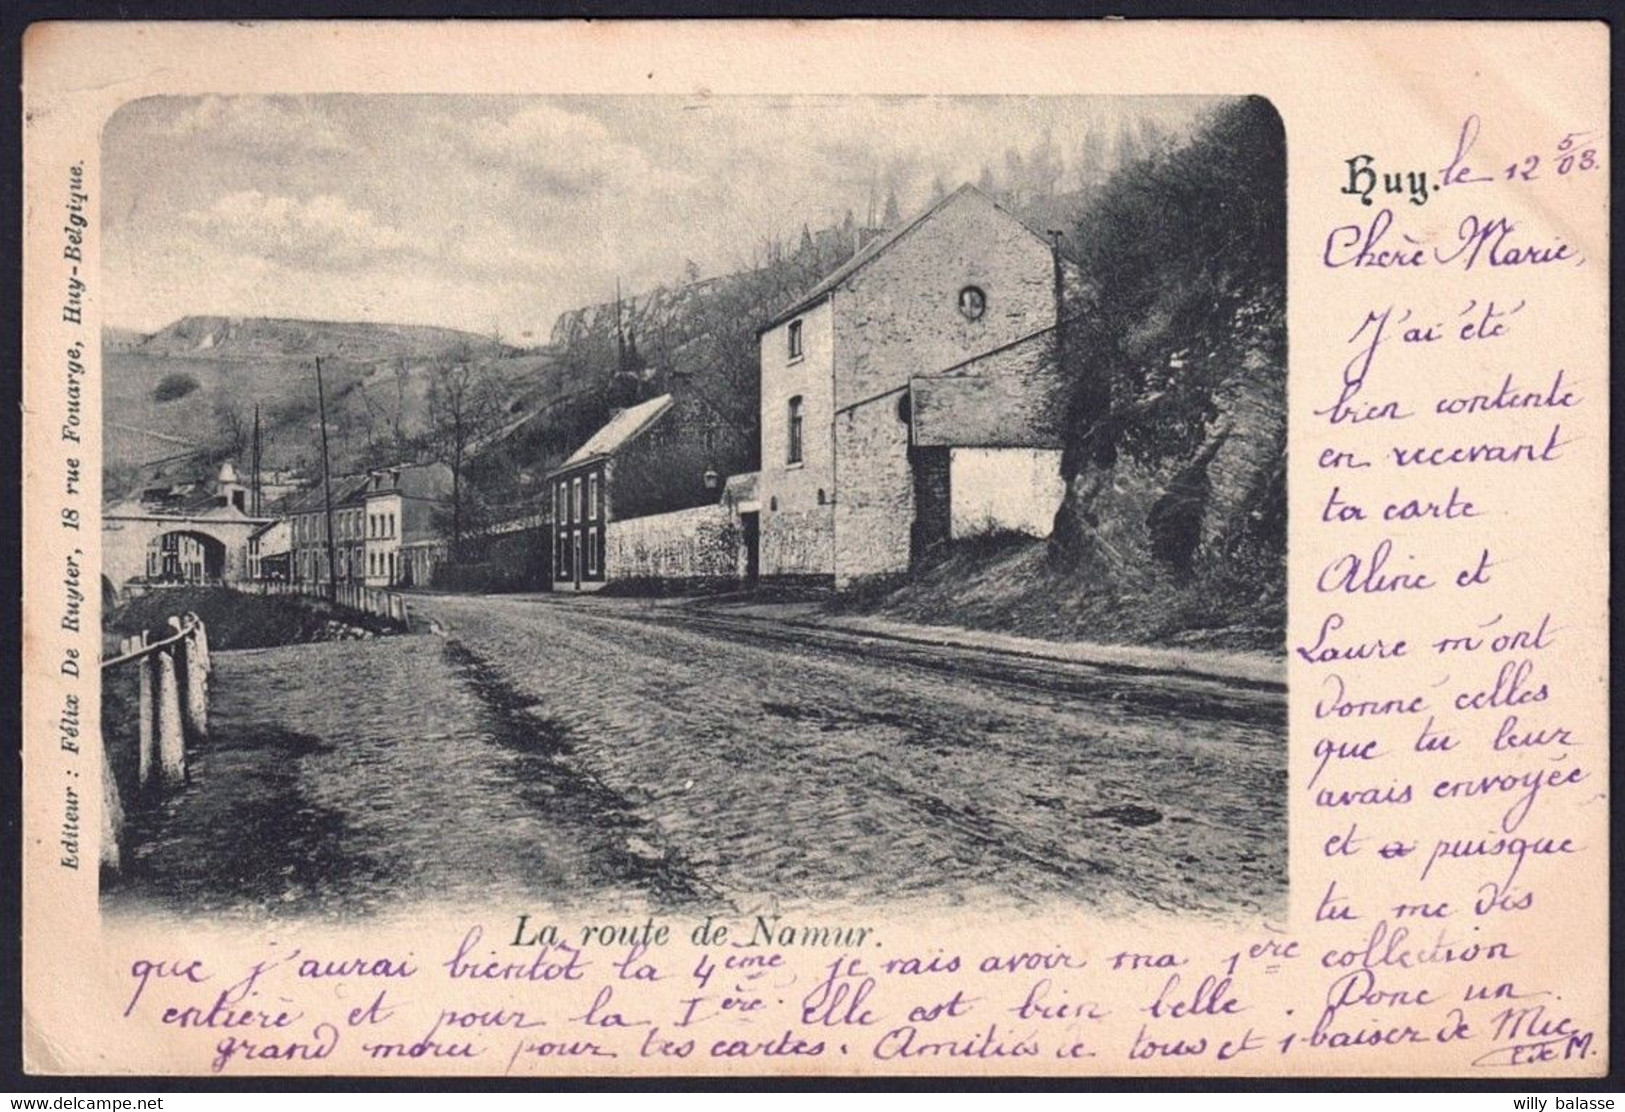 Editeur : Félix De Ruyter, 18 rue Fouarge, Huy-Belgique.
Huy. le 12 5/03.
Chère Marie,
J'ai été
bien contente
en recevant
ta carte
Aline et
Laure m'ont
donné celles
que tu leur
avais envoyée
et puisque
tu me dis
La route de Namur.
que j'aurai bientôt la 4ème je vais avoir ma 1ère collection
entière et pour la 1ère. elle est bien belle. Donc un
grand merci pour tes cartes. Amitiés de tous et 1 baiser de
willy balasse